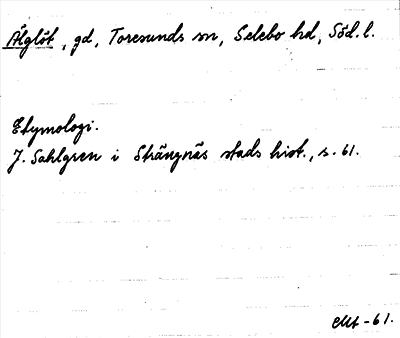 Älglöt, gd, Toresunds sn, Selebo hd, Söd. l.
Etymologi.
J. Sahlgren i Strängnäs stads hist., s. 61.
-61.